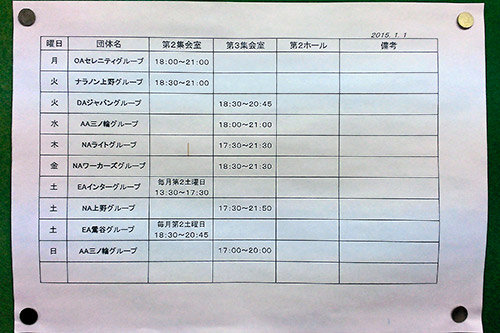 2015.1.1
曜日 団体名 第2集会室 第3集会室 第2ホール 備考
月 OAセレニティグループ 18:00～21:00
火 ナラノン上野グループ 18:30～21:00
火 DAジャパングループ 18:30～20:45
水 AA三ノ輪グループ 18:00～21:00
木 NAライトグループ 17:30～21:30
金 NAワーカーズグループ 18:30～21:30
土 EAインターグループ 毎月第2土曜日
13:30～17:30
土 NA上野グループ 17:30～21:50
土 EA鶯谷グループ 毎月第2土曜日
18:30～20:45
日 AA三ノ輪グループ 17:00～20:00